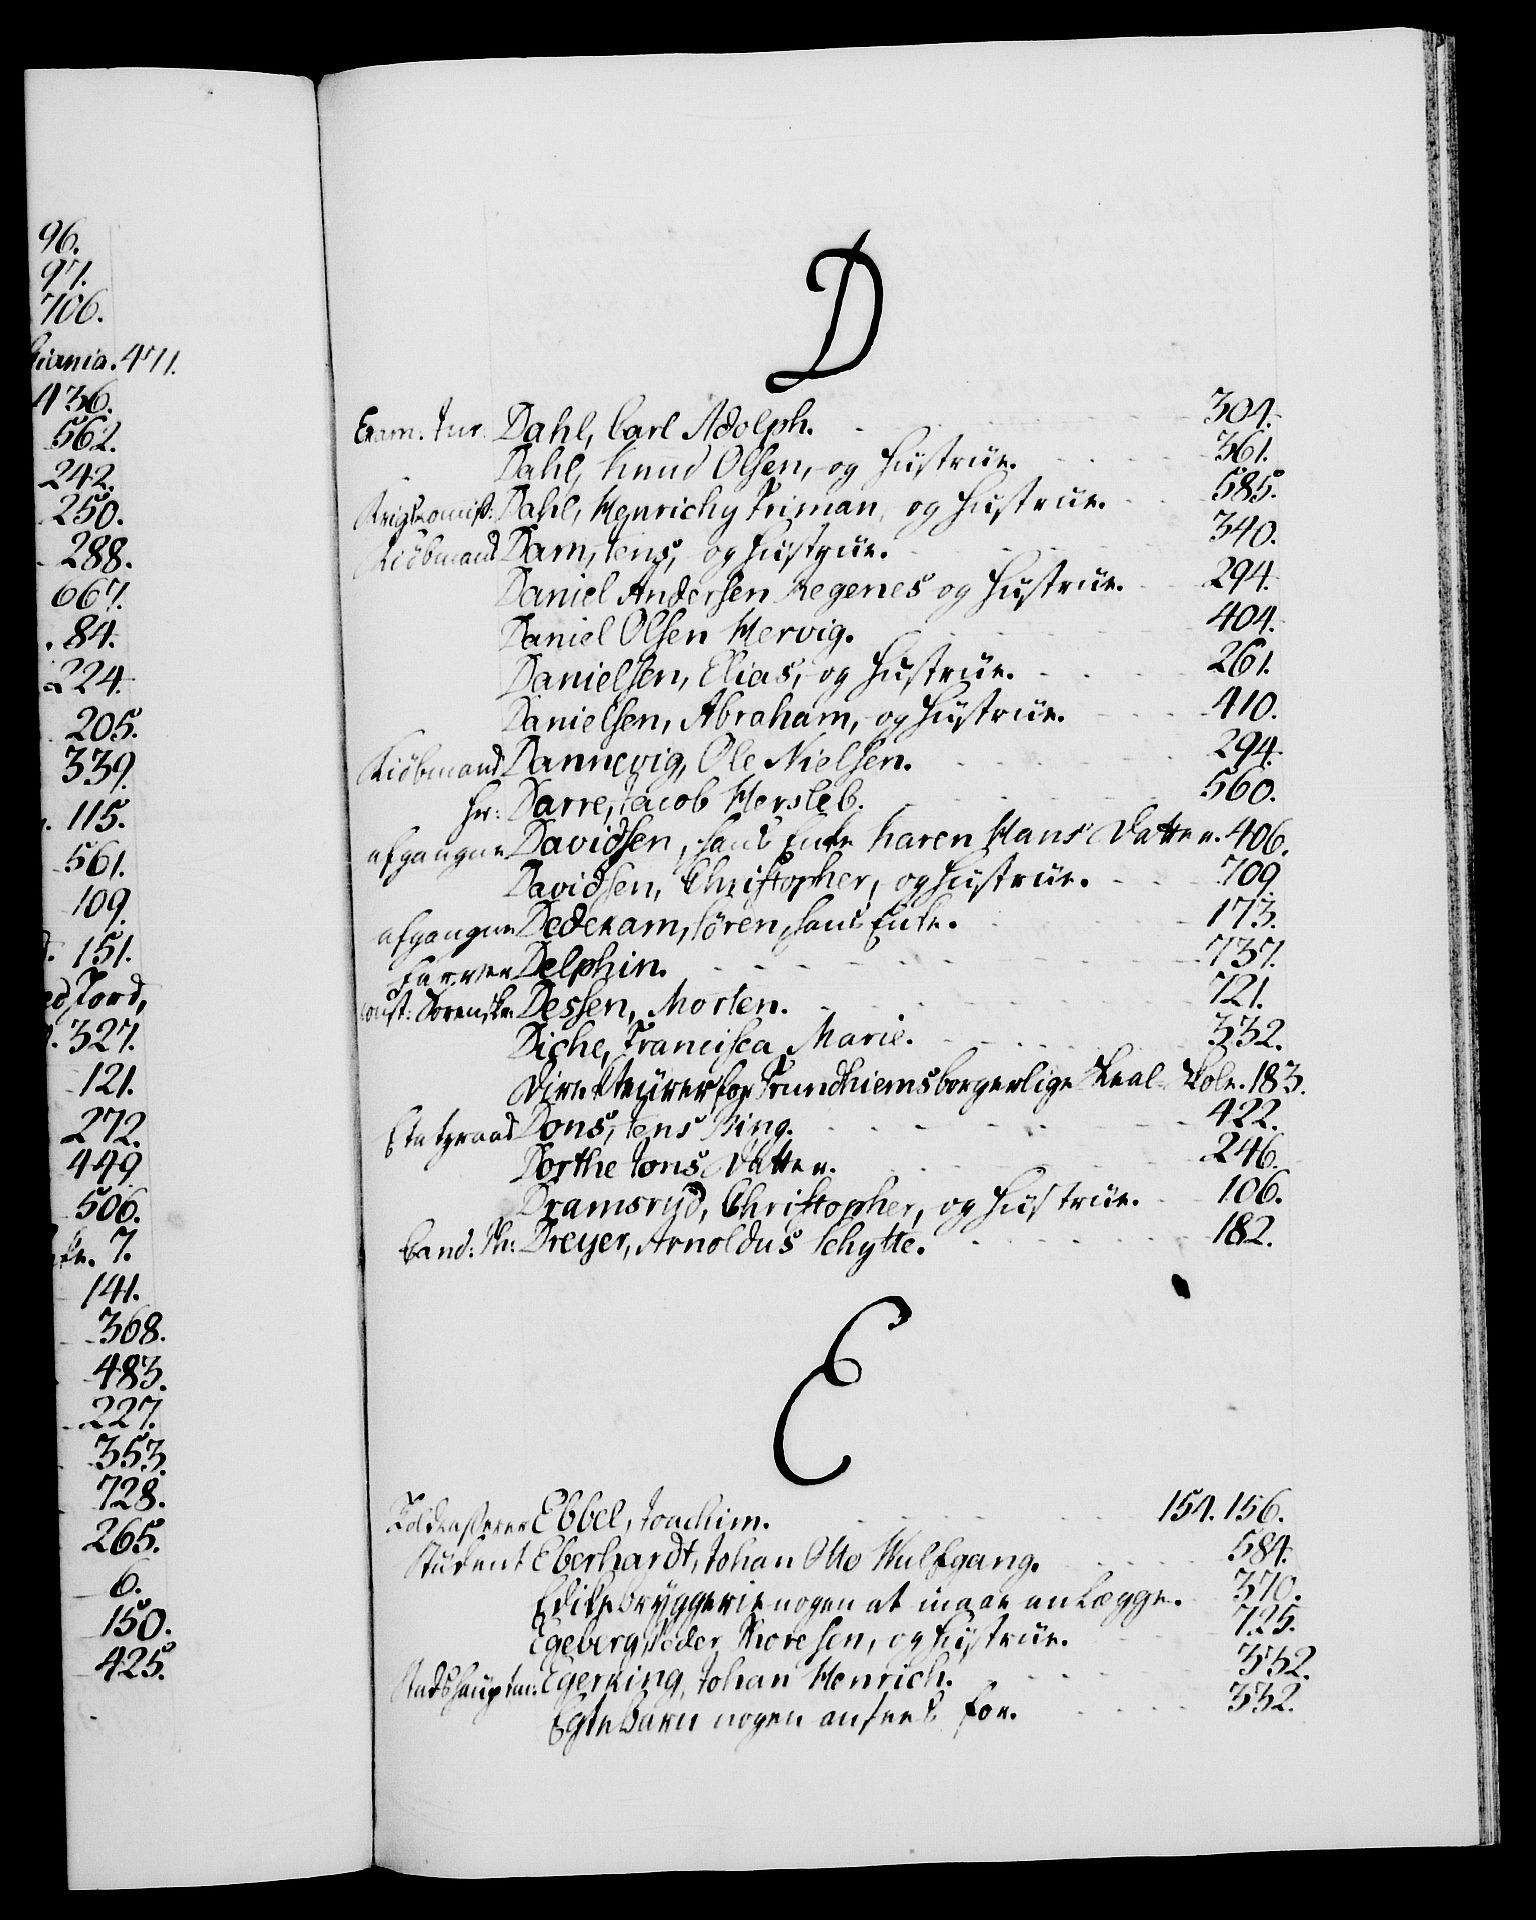 96.
97.
706.
hiania. 471.
436.
562.
242.
250.
288.
667.
84.
224.
205.
339.
115.
561.
109.
151.
ed Tord,
327.
121.
272.
449.
506.
7.
141.
368.
483.
227.
353.
728.
265.
6.
150.
425.
D
Exam. Jur. Dahl, Carl Adolph. 304.
Dahl, Knud Olsen, og Hustrue. 361.
Krigskomiss: Dahl, Henrichy Friman, og Hustrue. 585.
Kiöbmand Dam, Jens, og Hustrue. 340.
Daniel Andersen Regenes og Hustrue. 294.
Daniel Olsen Hervig. 404.
Danielsen, Elias, og Hustrue. 261.
Danielsen, Abraham, og Hustrue. 410.
Kiöbmand Dannevig, Ole Nielsen. 294.
Hr: Darre, Jacob Hersleb. 560.
afgangne Davidsen, hans Enke Karen Hans Datter. 406.
Davidsen, Christopher, og Hustrue. 709.
afgangne Dedekam, Sören, hans Enke. 173.
Farver Delphin. 737.
const: Sorenskr: Dessen, Morten. 721.
Diche, Francisca Marie. 332.
Direkteurer for Trundhiems borgerlige Real-Skole. 183.
Etatsraad Dons, Jens Bing. 422.
Dorthe Jons Datter. 246.
Dramsryd, Christopher, og Hustrue. 106.
Cand: Ph: Dreyer, Arnoldus Schytte. 182.
E
Toldkasserer Ebbel, Joachim. 154. 156.
Student Eberhardt, Johan Otto Wulfgang. 584.
Edikebryggerie nogen at maae anlægge. 370.
Egeberg, Peder Thoresen, og Hustrue. 725.
Stadshauptm: Egerking, Johan Henrich. 352.
Egtebarn nogen anseet for. 332.